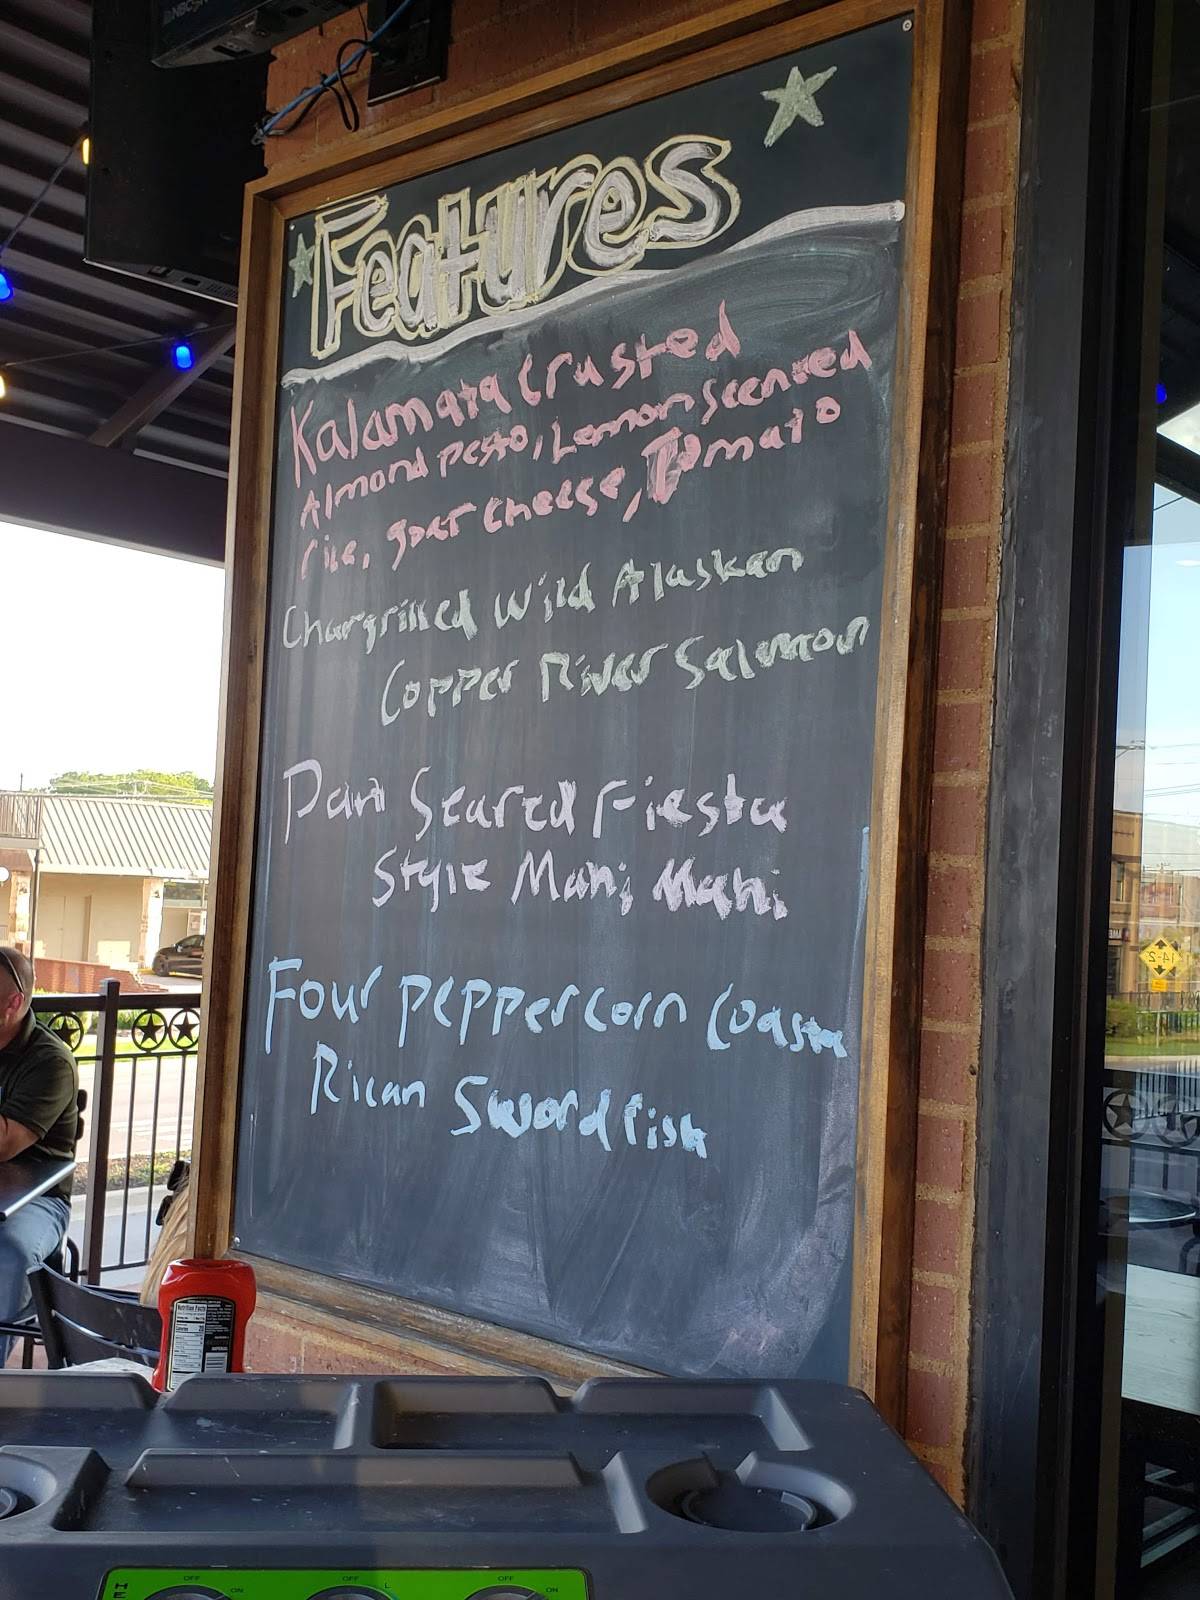 Features
Kalamata Crusted
Almond pesto, Lemon Scented
rice, goat cheese, Tomato
Chargrilled Wild Alaskan
Copper River Salmon
Pan Seared Fiesta
Style Mahi Mahi
Four peppercorn Coasta
Rican Swordfish
Nutrition Facts
OFF
ON
OFF
L
OFF
ON
14-2